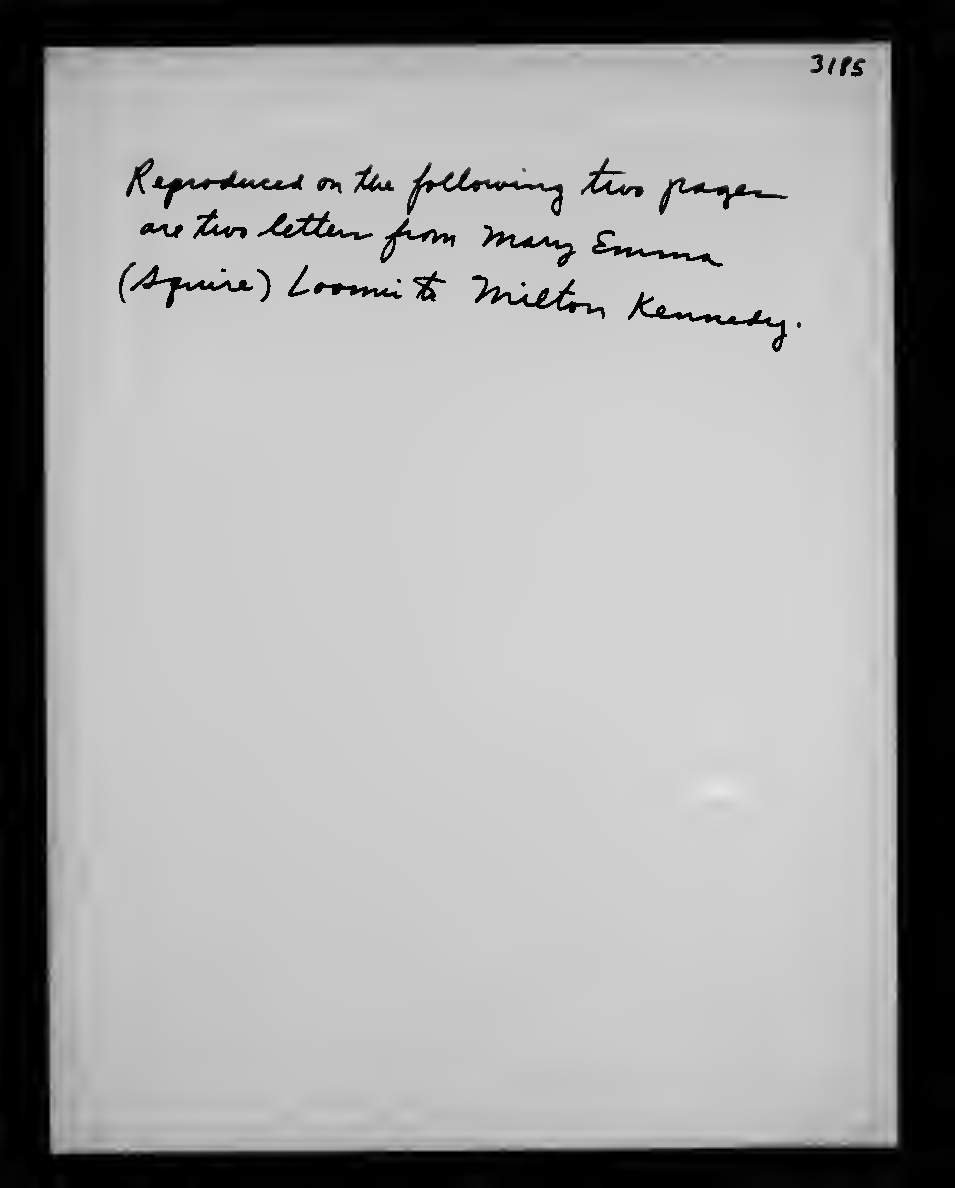 3185
Reproduced on the following two pages
are two letters from Mary Emma
(Squire) Loomis to Milton Kennedy.